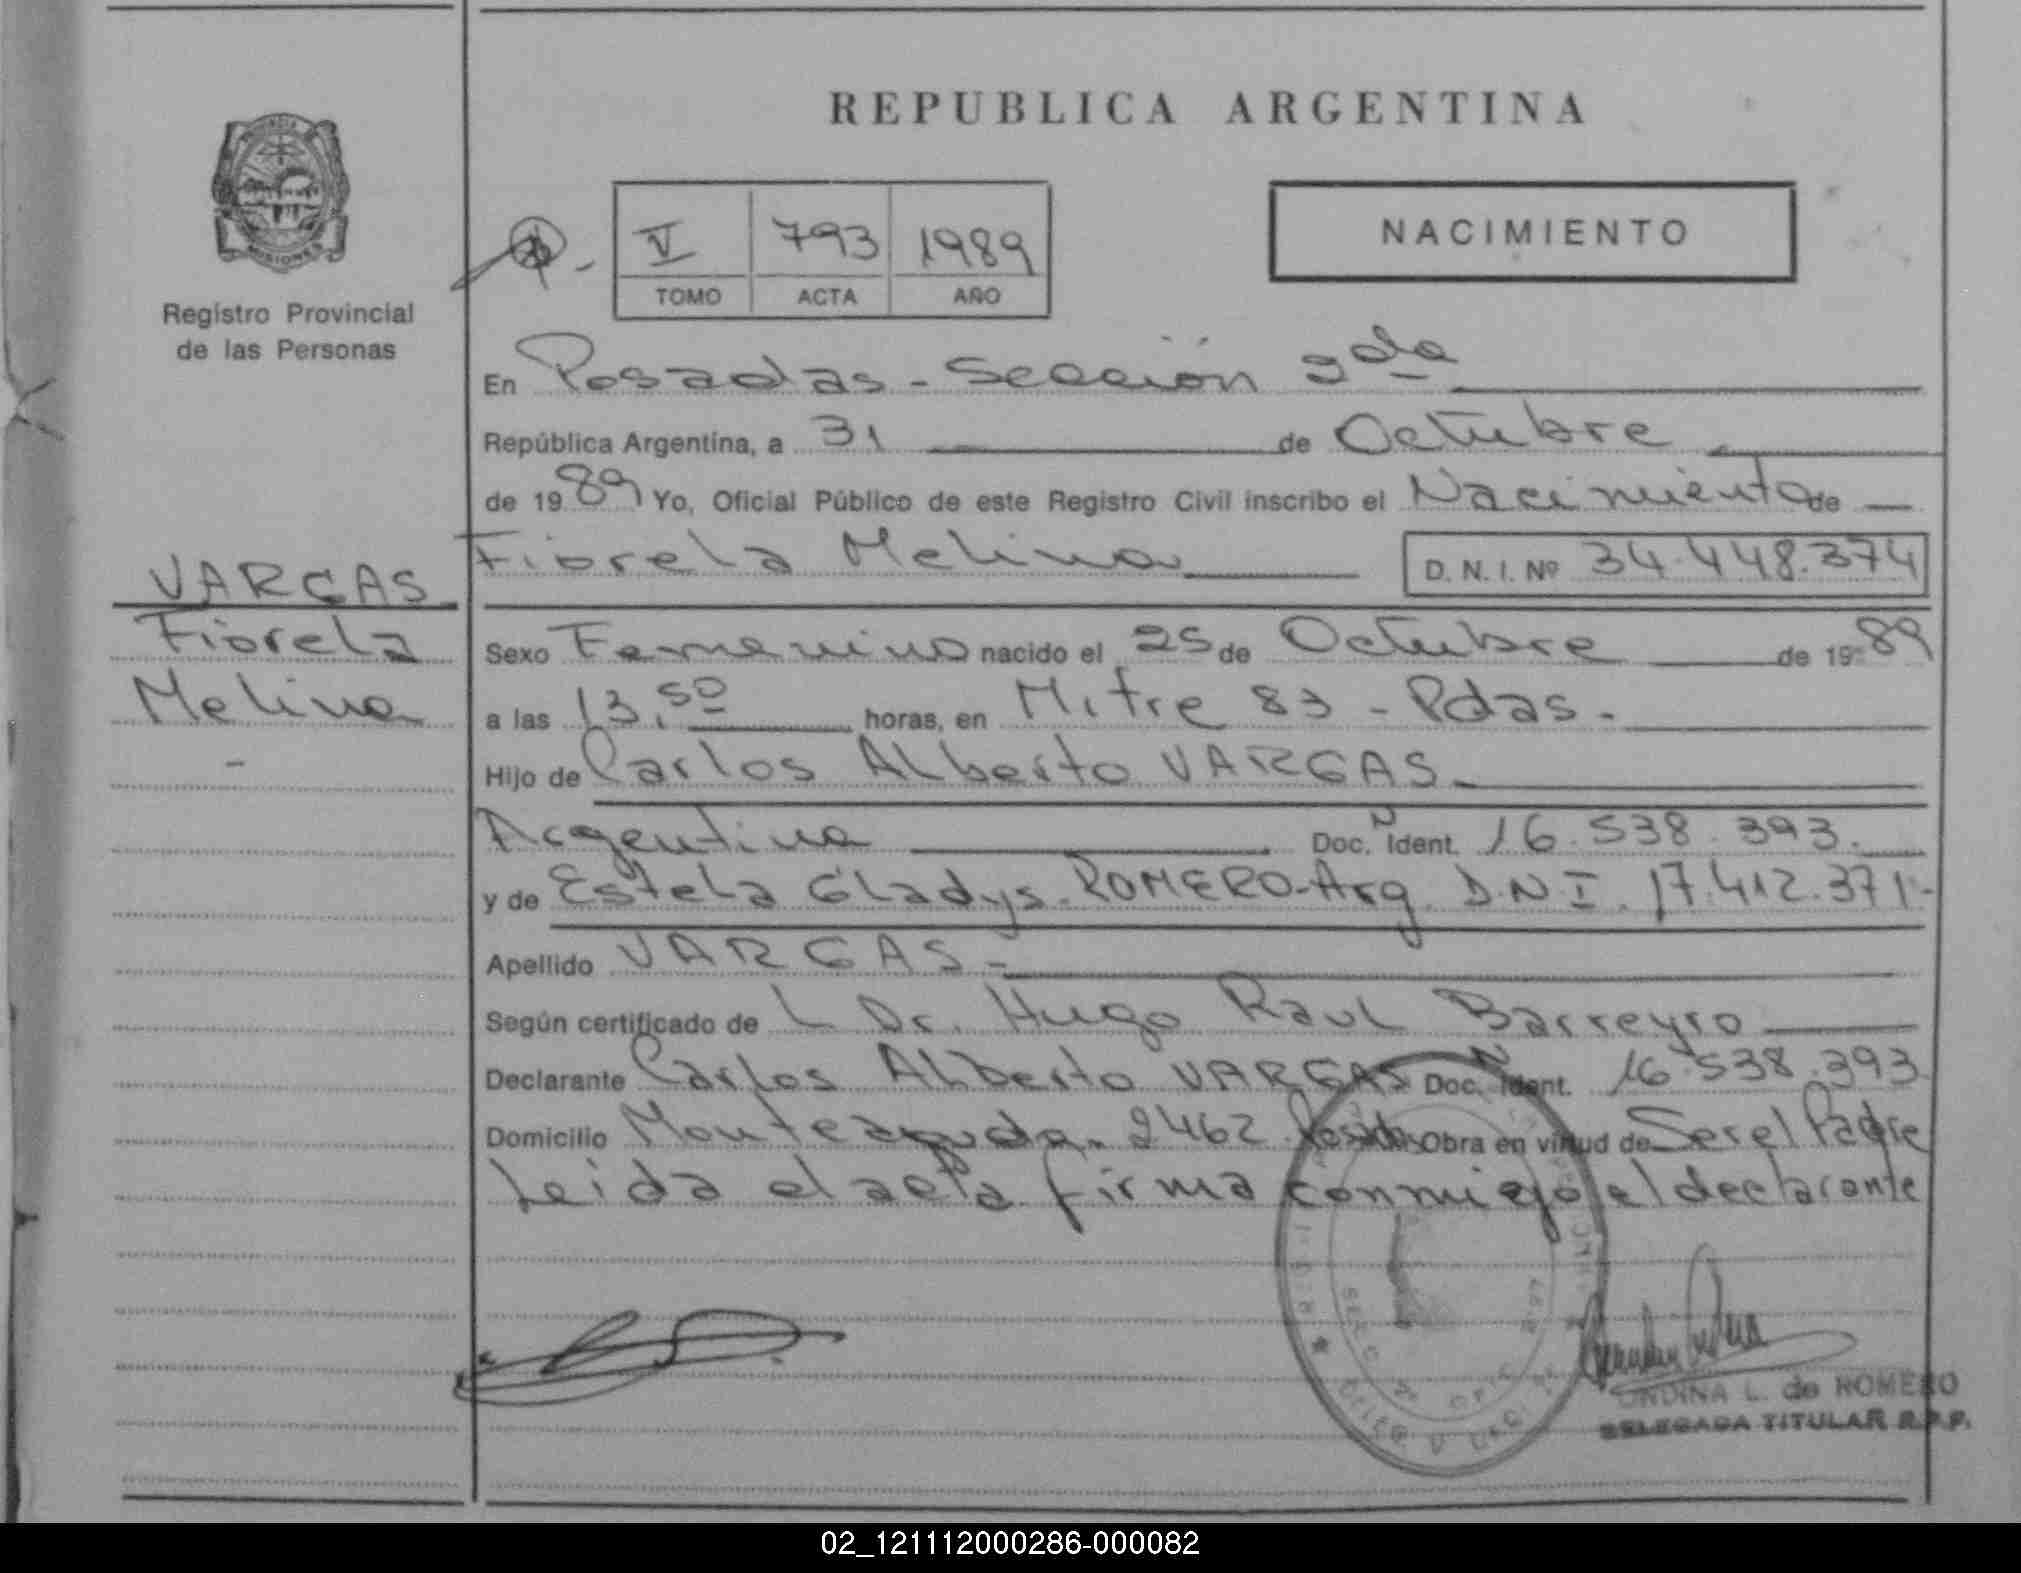 REPUBLICA ARGENTINA
PROVINCIA
MISIONES
Registro Provincial
de las Personas
V 793 1989
TOMO ACTA AÑO
NACIMIENTO
En Posadas - Sección 2da
República Argentina, a 31 de Octubre
de 1989 Yo, Oficial Público de este Registro Civil inscribo el Nacimiento de
Fiorela Melina D. N. I. Nº 34.448.374
VARGAS
Fiorela
Melina
Sexo Femenino nacido el 25 de Octubre de 1989
a las 13,50 horas, en Mitre 83 - Pdas.
Hijo de Carlos Alberto VARGAS
Argentina Doc. N Ident. 16.538.393.
y de Estela Gladys ROMERO - Arg. D.N.I. 17.412.371-
Apellido VARGAS -
Según certificado de L Dr. Hugo Raul Barreyro
Declarante Carlos Alberto VARGAS Doc. N Ident. 16.538.393
Domicilio Monteagudo 2462 Posadas Obra en virtud de Ser el Padre
Leida el acta firma conmigo el declarante
ONDINA L. de ROMERO
DELEGADA TITULAR R.P.P.
02_121112000286-000082